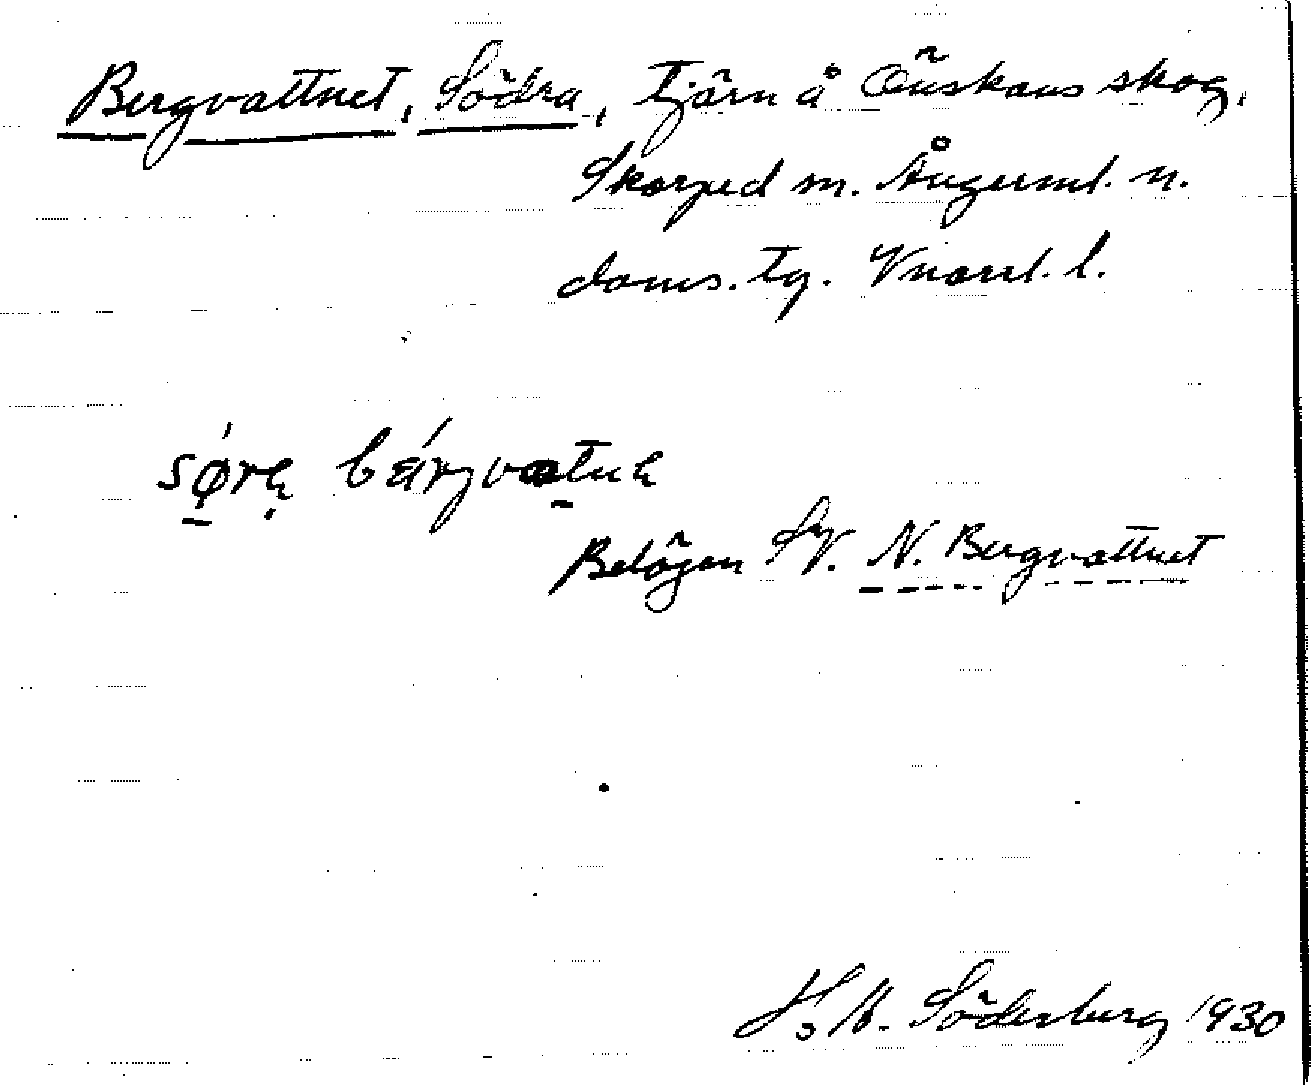 Bergvattnet, Södra, tjärn å Önskans skog,
Skorped sn. Ångerml. n.
doms. tg. Vnorrl. l.
sø̀rę bǽrgvatnę
Belägen SV. N. Bergvattnet
H. M. Söderberg 1930